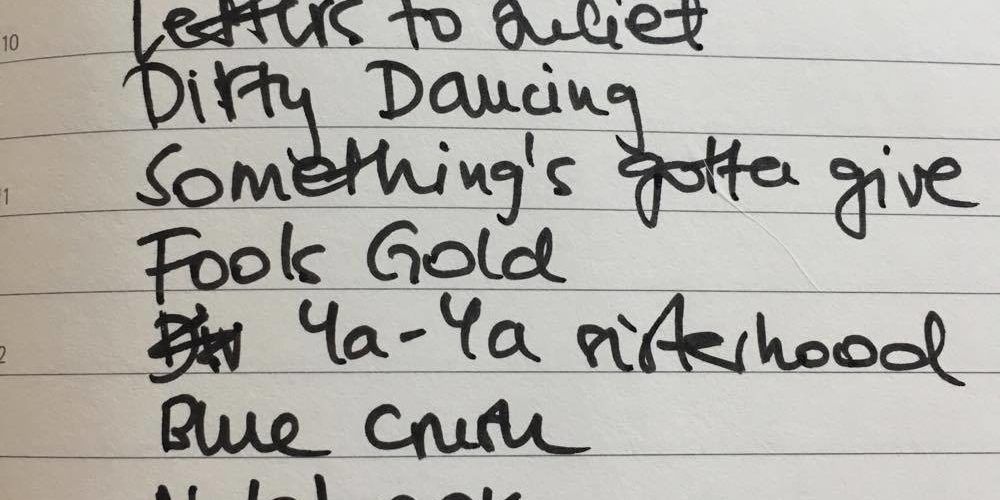 10 Letters to Juliet
Dirty Dancing
11 Something's gotta give
Fools Gold
12 Ya-Ya sisterhood
Blue Crush
Notebook